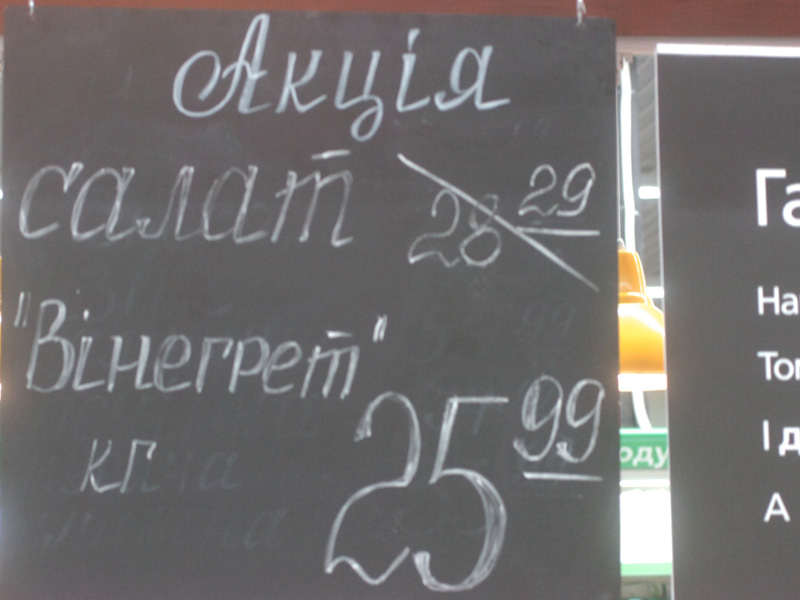 Акція
салат 28 29
"Вінегрет"
кг 25 99
Га
На
Топ
І д
А
оду